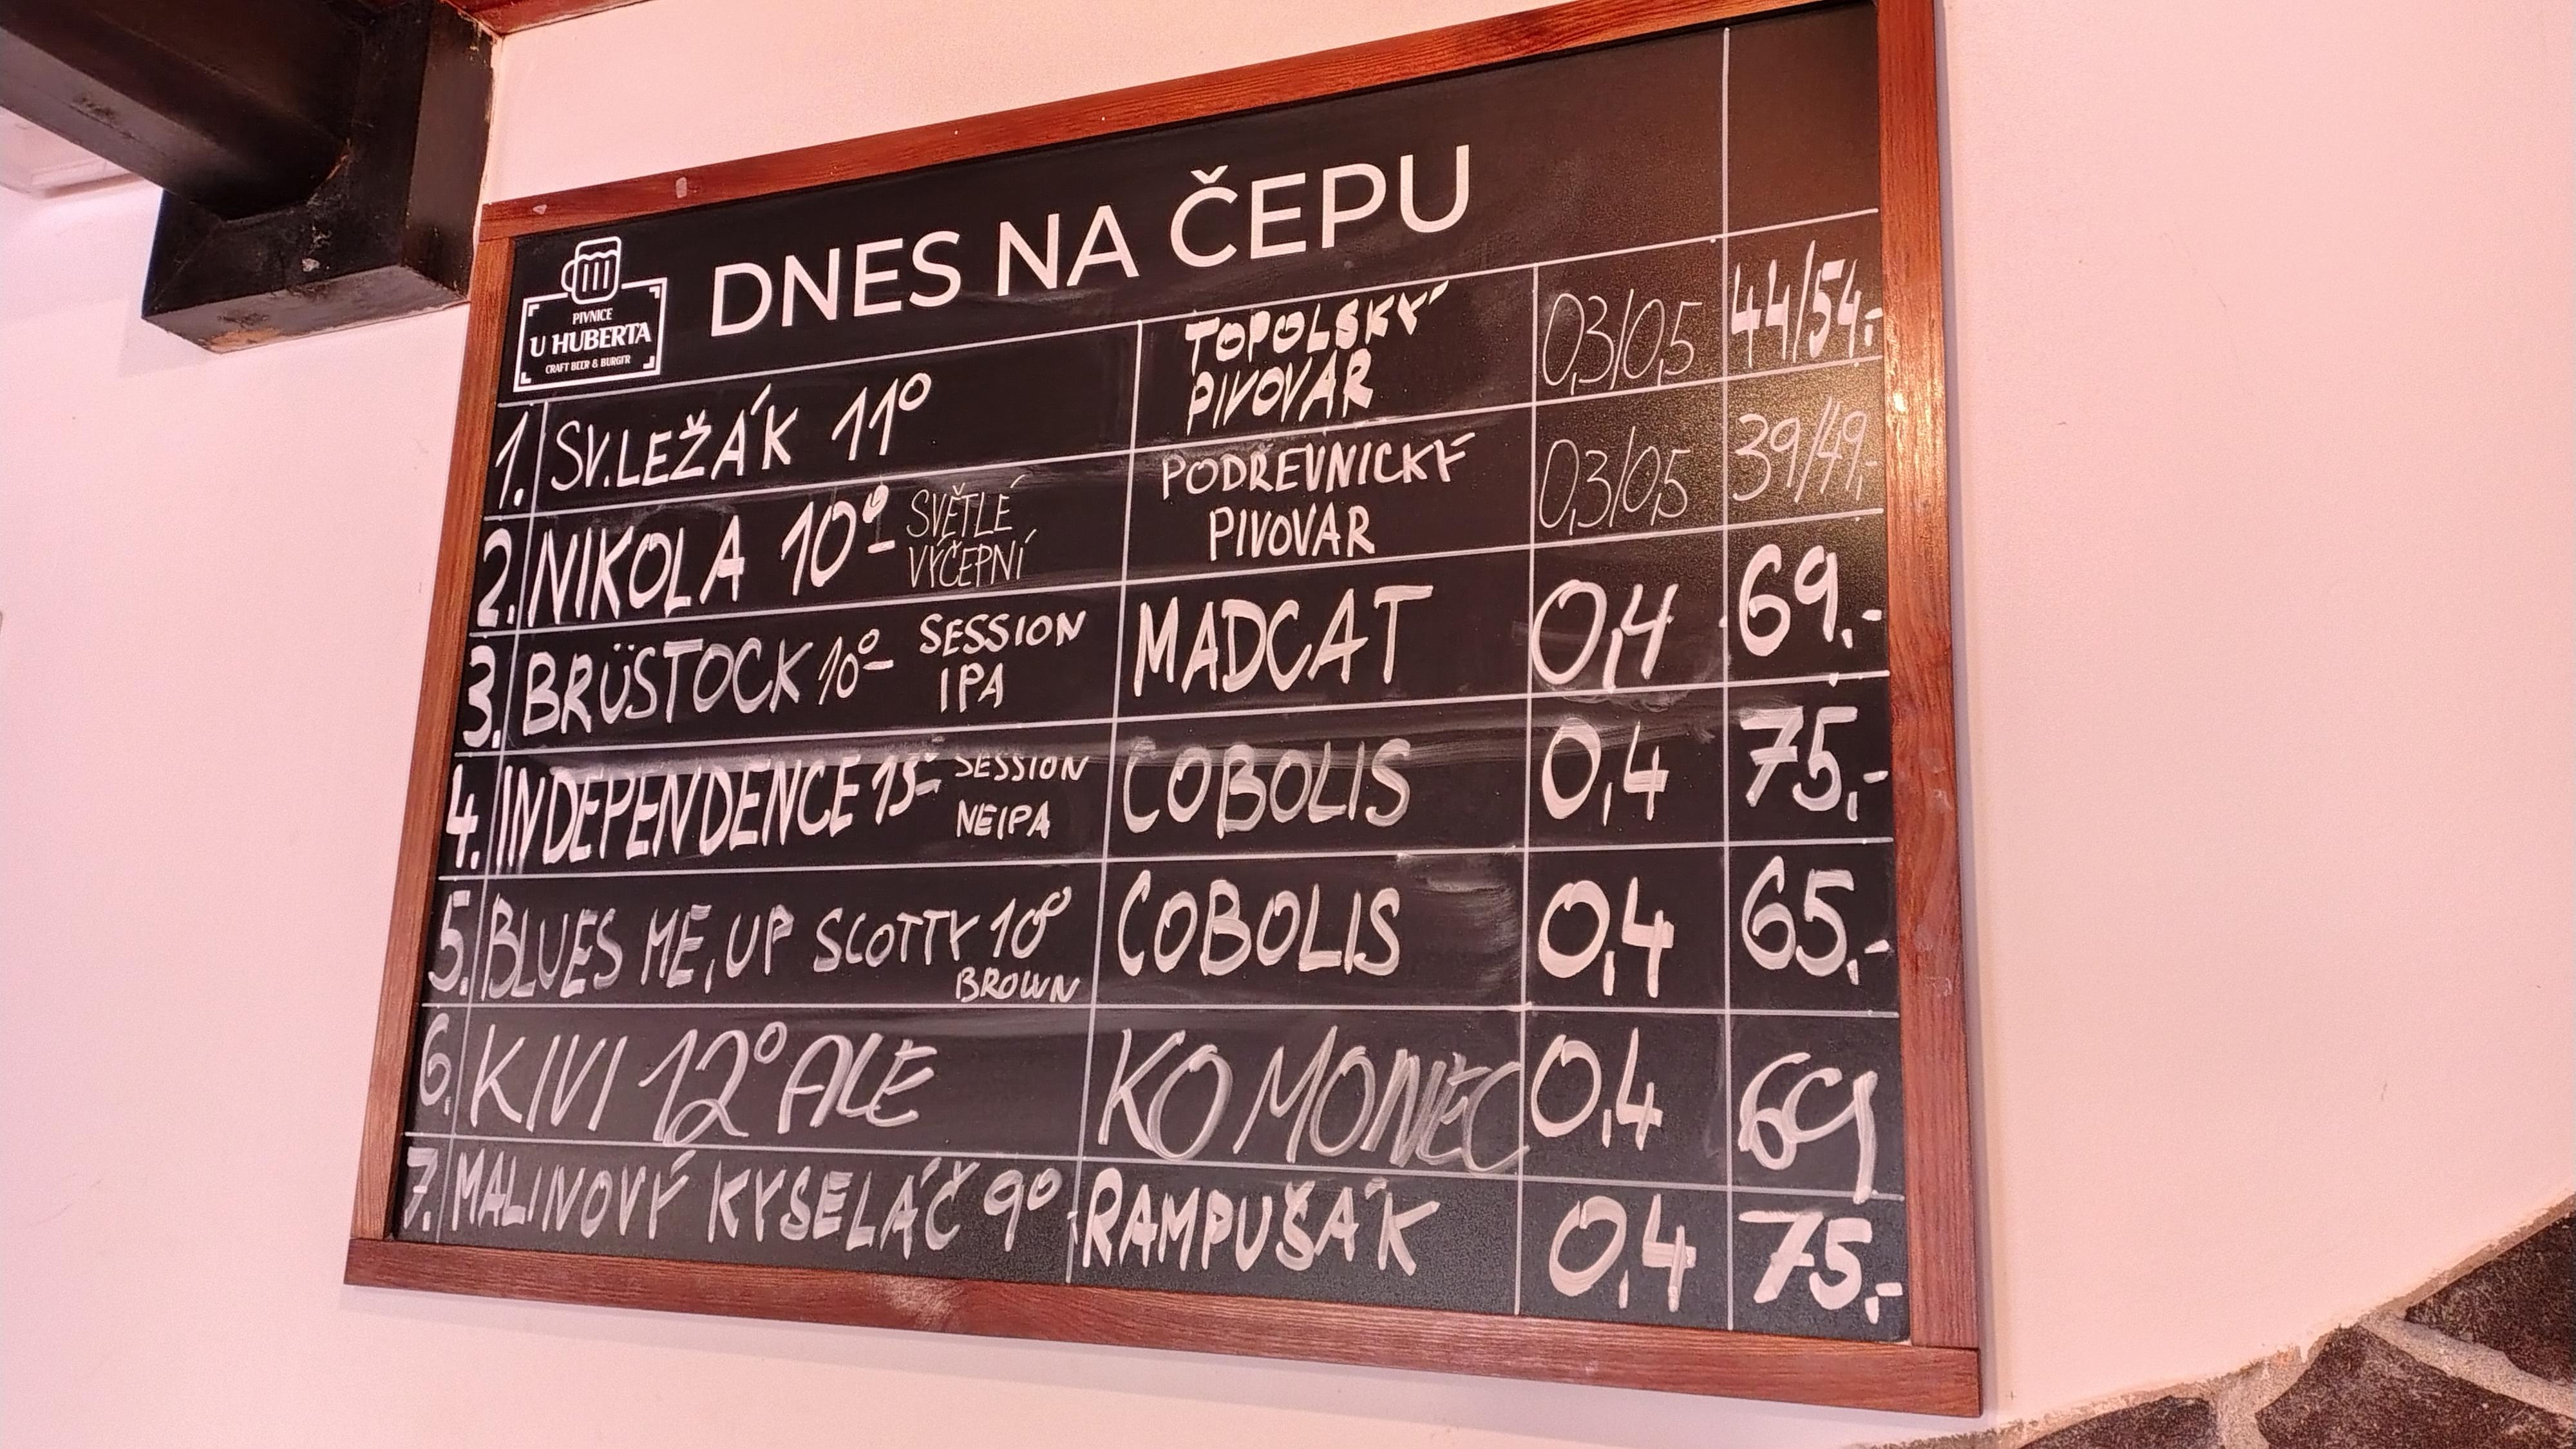 PIVNICE
U HUBERTA
CRAFT BEER & BURGER
DNES NA ČEPU
1. SV. LEŽÁK 11° TOPOLSKÝ PIVOVAR 0,3/0,5 44/54,-
2. NIKOLA 10°- SVĚTLÉ VÝČEPNÍ PODŘEVNICKÝ PIVOVAR 0,3/0,5 39/49,-
3. BRÜSTOCK 10°- SESSION IPA MADCAT 0,4 69.-
4. INDEPENDENCE 13°- SESSION NEIPA COBOLIS 0,4 75,-
5. BLUES ME, UP SCOTTY 10° BROWN COBOLIS 0,4 65,-
6. KIVI 12° ALE KOMONEC 0,4 69
7. MALINOVÝ KYSELÁČ 9° RAMPUŠÁK 0,4 75,-